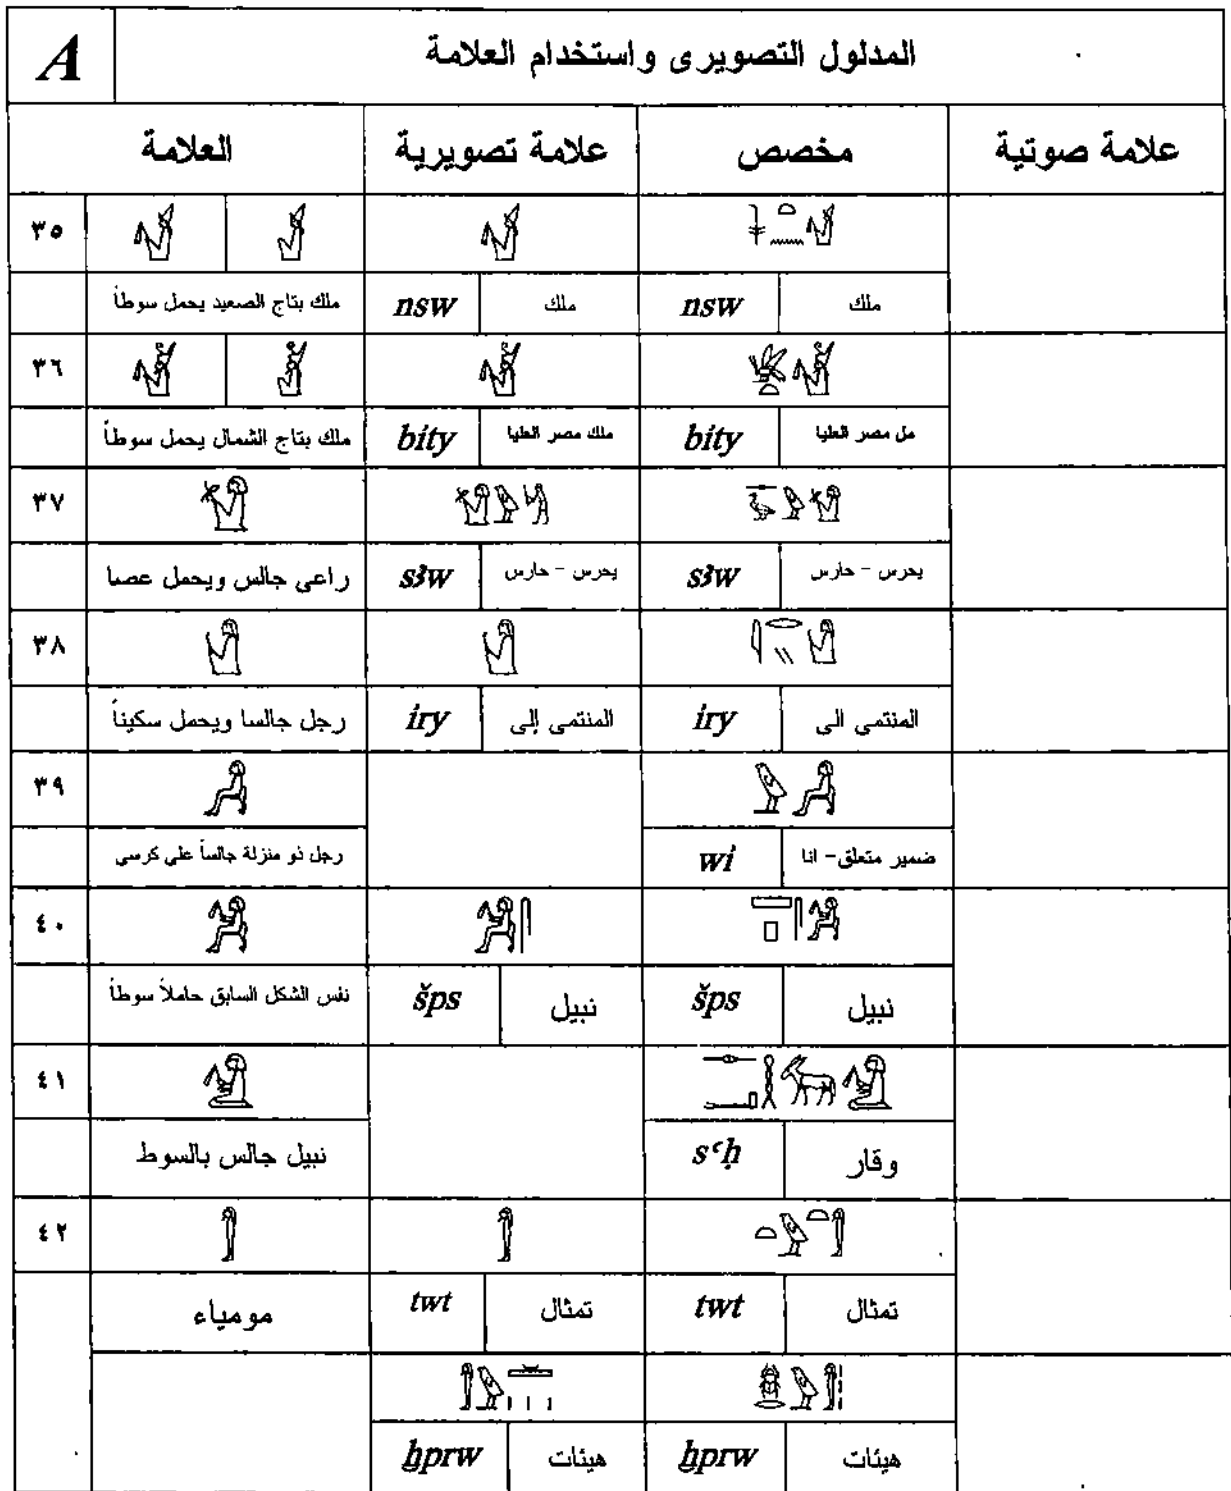 A المدلول التصويرى واستخدام العلامة
العلامة علامة تصويرية مخصص علامة صوتية
٣٥
ملك بتاج الصعيد يحمل سوطاً nsw ملك nsw ملك
٣٦
ملك بتاج الشمال يحمل سوطاً bity ملك مصر العليا bity مل مصر العليا
٣٧
راعى جالس ويحمل عصا sꜣw يحرس - حارس sꜣw يحرس - حارس
٣٨
رجل جالسا ويحمل سكيناً iry المنتمى إلى iry المنتمى الى
٣٩
رجل ذو منزلة جالساً علي كرسي wi ضمير متعلق- انا
٤٠
نفس الشكل السابق حاملاً سوطاً šps نبيل šps نبيل
٤١
نبيل جالس بالسوط sꜥḥ وقار
٤٢
مومياء twt تمثال twt تمثال
ḫprw هيئات ḫprw هيئات